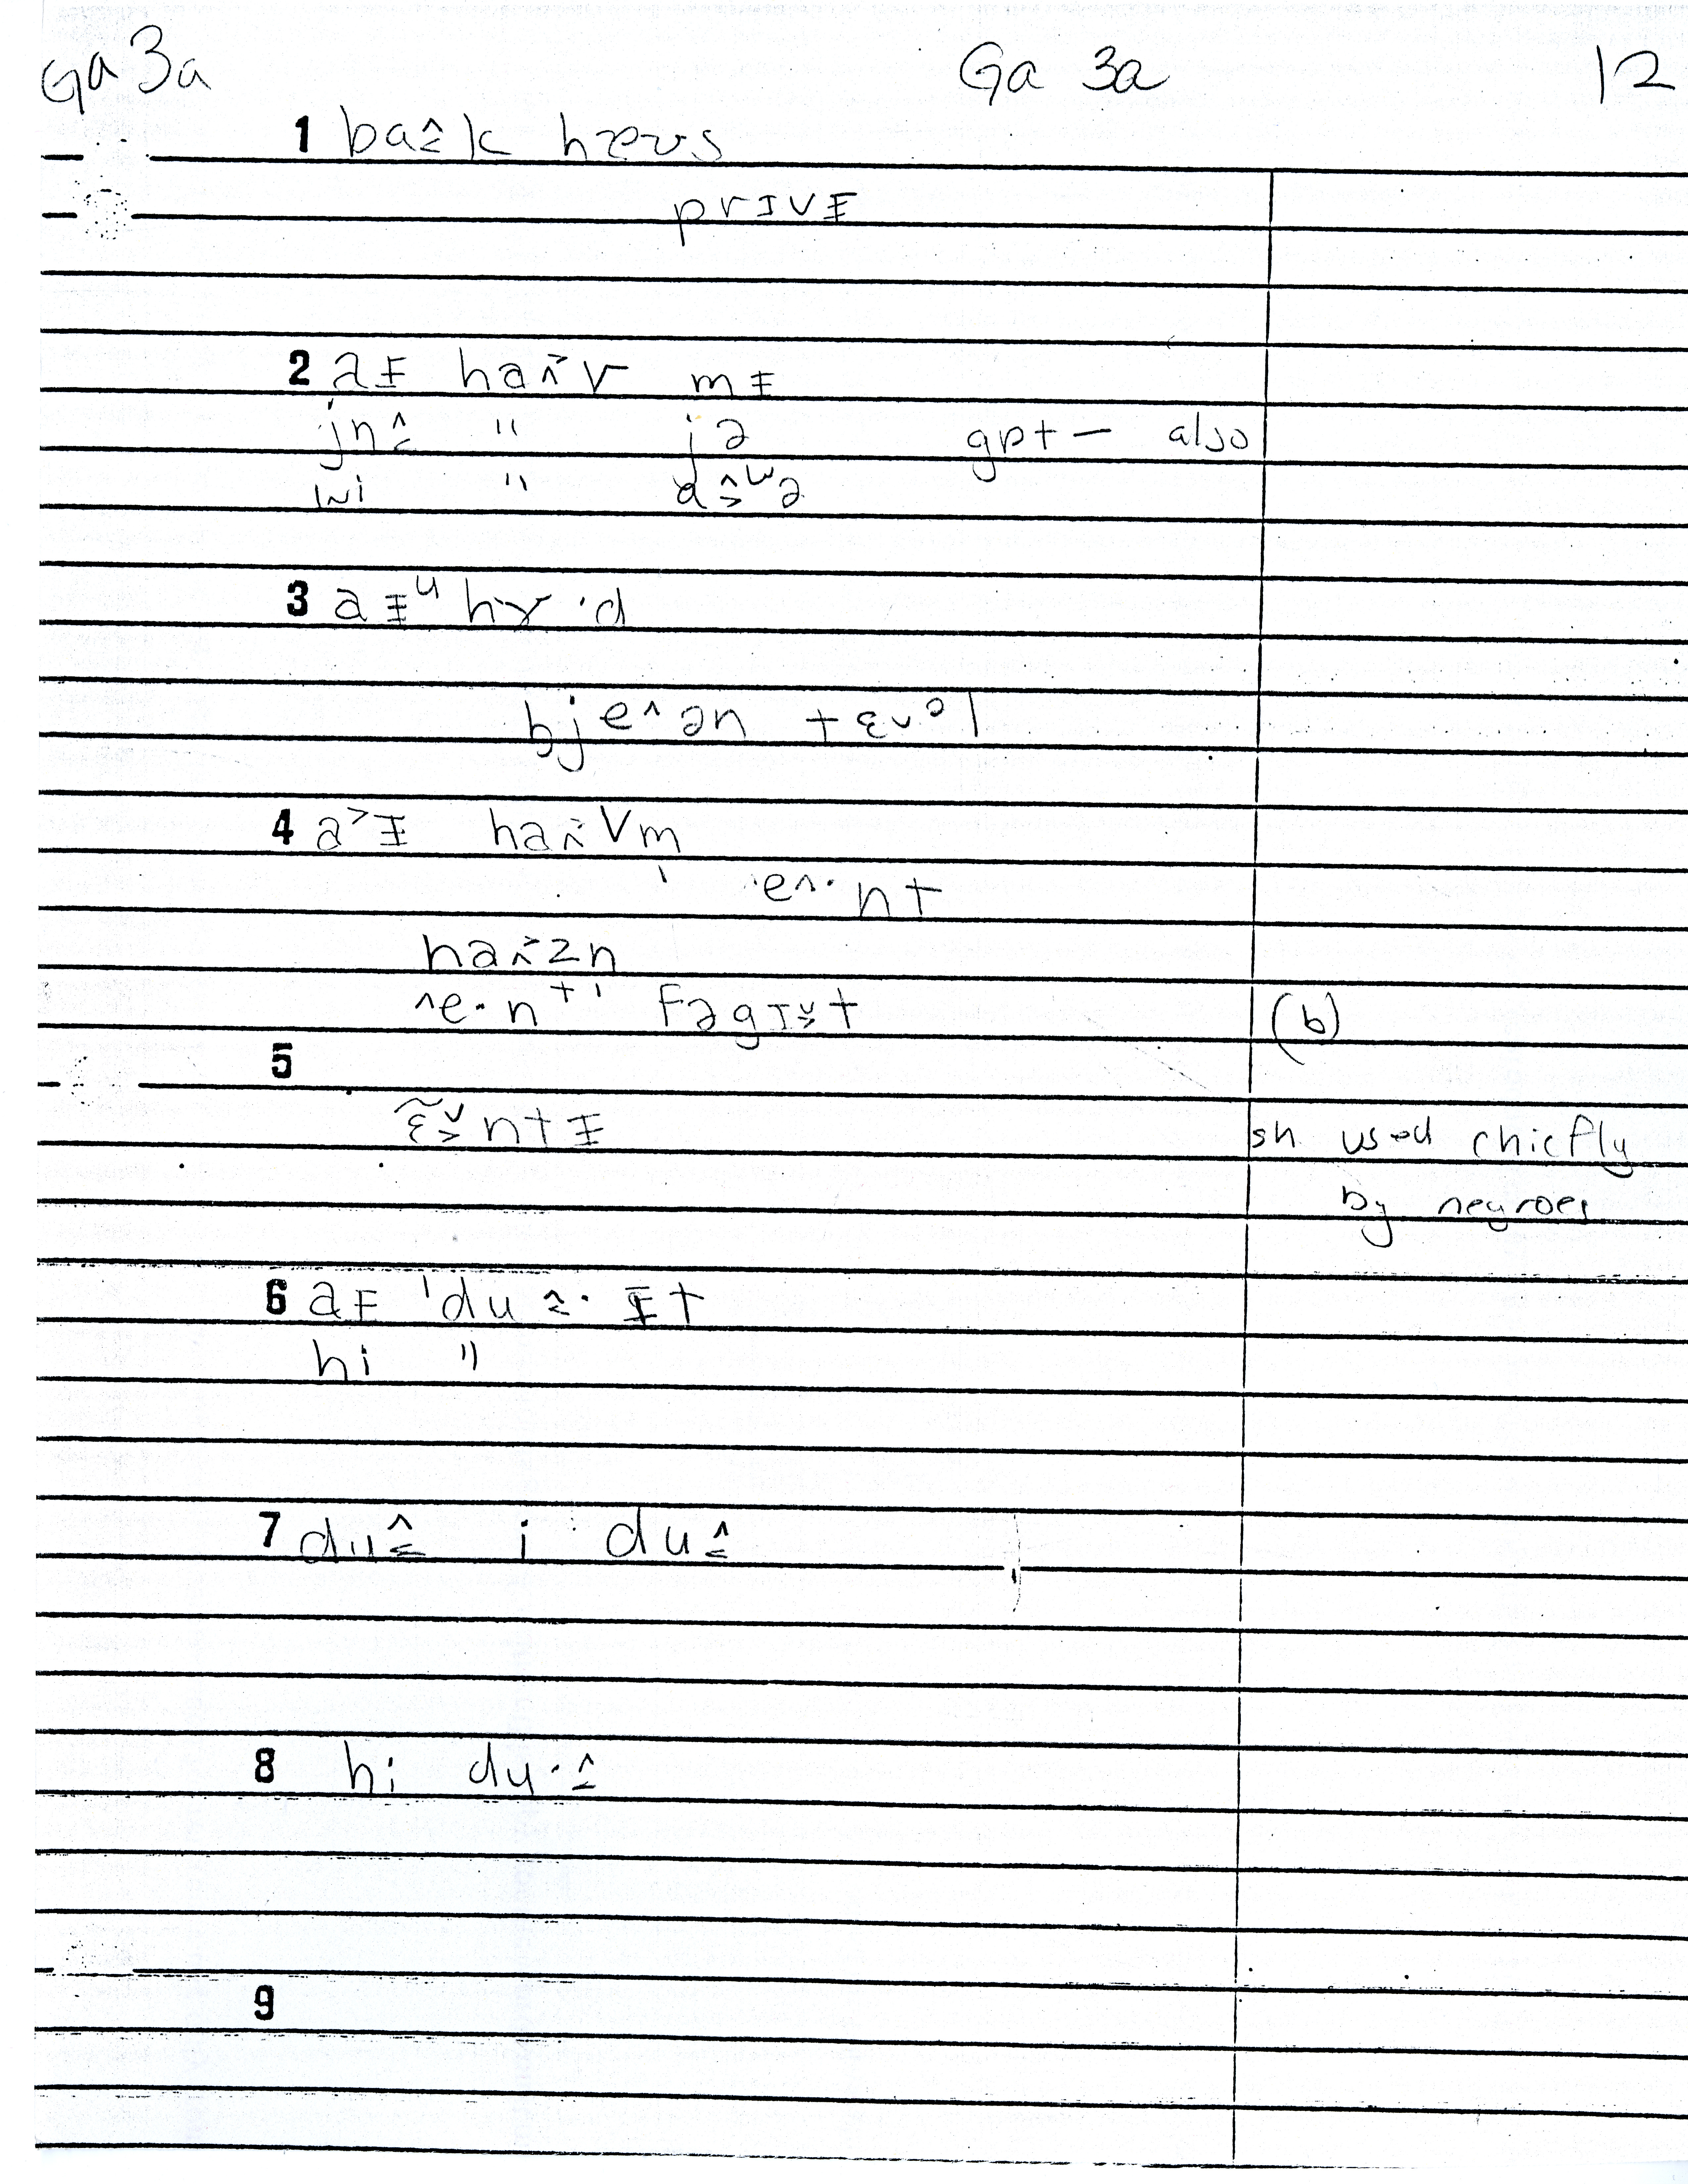 Ga 3a Ga 3a 12
1 ba≙k hɐʊs
prɪvɪ̵
2 aɪ̵ haʌ˃v mɪ̵
jʉ " jə gɒt — also
wi " ə
3 aɪ̵ᵘ hɤ·d
bje^ən tɛvᵊl
4 a˃ɪ̵ haʌ˃vm̩
e^·nt
haʌ˃zn̩
^e·nt fəgɪt (b)
5
ɛ̃ntɪ̵ sh used chiefly
by negroes
6 aɪ̵ ˈdu· ɪ̵t
hi "
7 du i du
8 hi du·
9